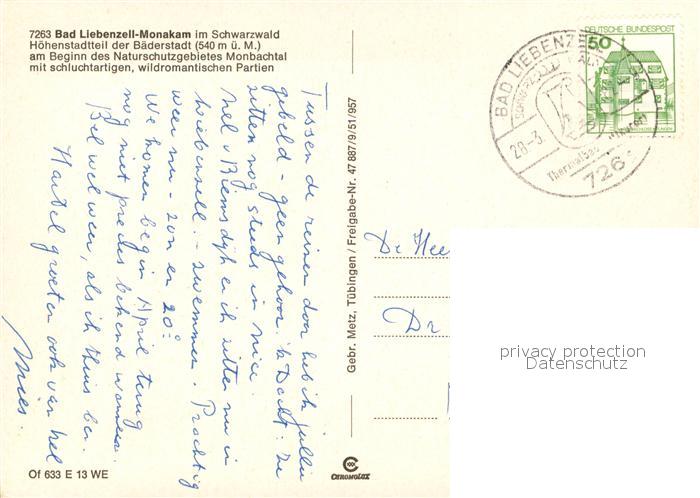 7263 Bad Liebenzell-Monakam im Schwarzwald
Höhenstadtteil der Bäderstadt (540 m ü. M.)
am Beginn des Naturschutzgebietes Monbachtal
mit schluchtartigen, wildromantischen Partien
Tussen de reizen door heb ik jullie
gebeld - geen gehoor. 'k Dacht: ze
zitten nog steeds in Nice.
Nel v Biemsdijk en ik zitten nu in
Liebenzell. - zwemmen. Prachtig
weer nu - zon en 20°.
We komen begin April terug
nog niet precies bekend wanneer.
Bel wel weer, als ik thuis ben.
Hartel. groeten ook van Nel
Mies.
Of 633 E 13 WE
Gebr. Metz, Tübingen / Freigabe-Nr. 47 887/9/51/957
CHROMOLUX
DEUTSCHE BUNDESPOST
50
BAD LIEBENZELL
28.-3.
Thermalbad
726
De Heer
Dr
privacy protection
Datenschutz